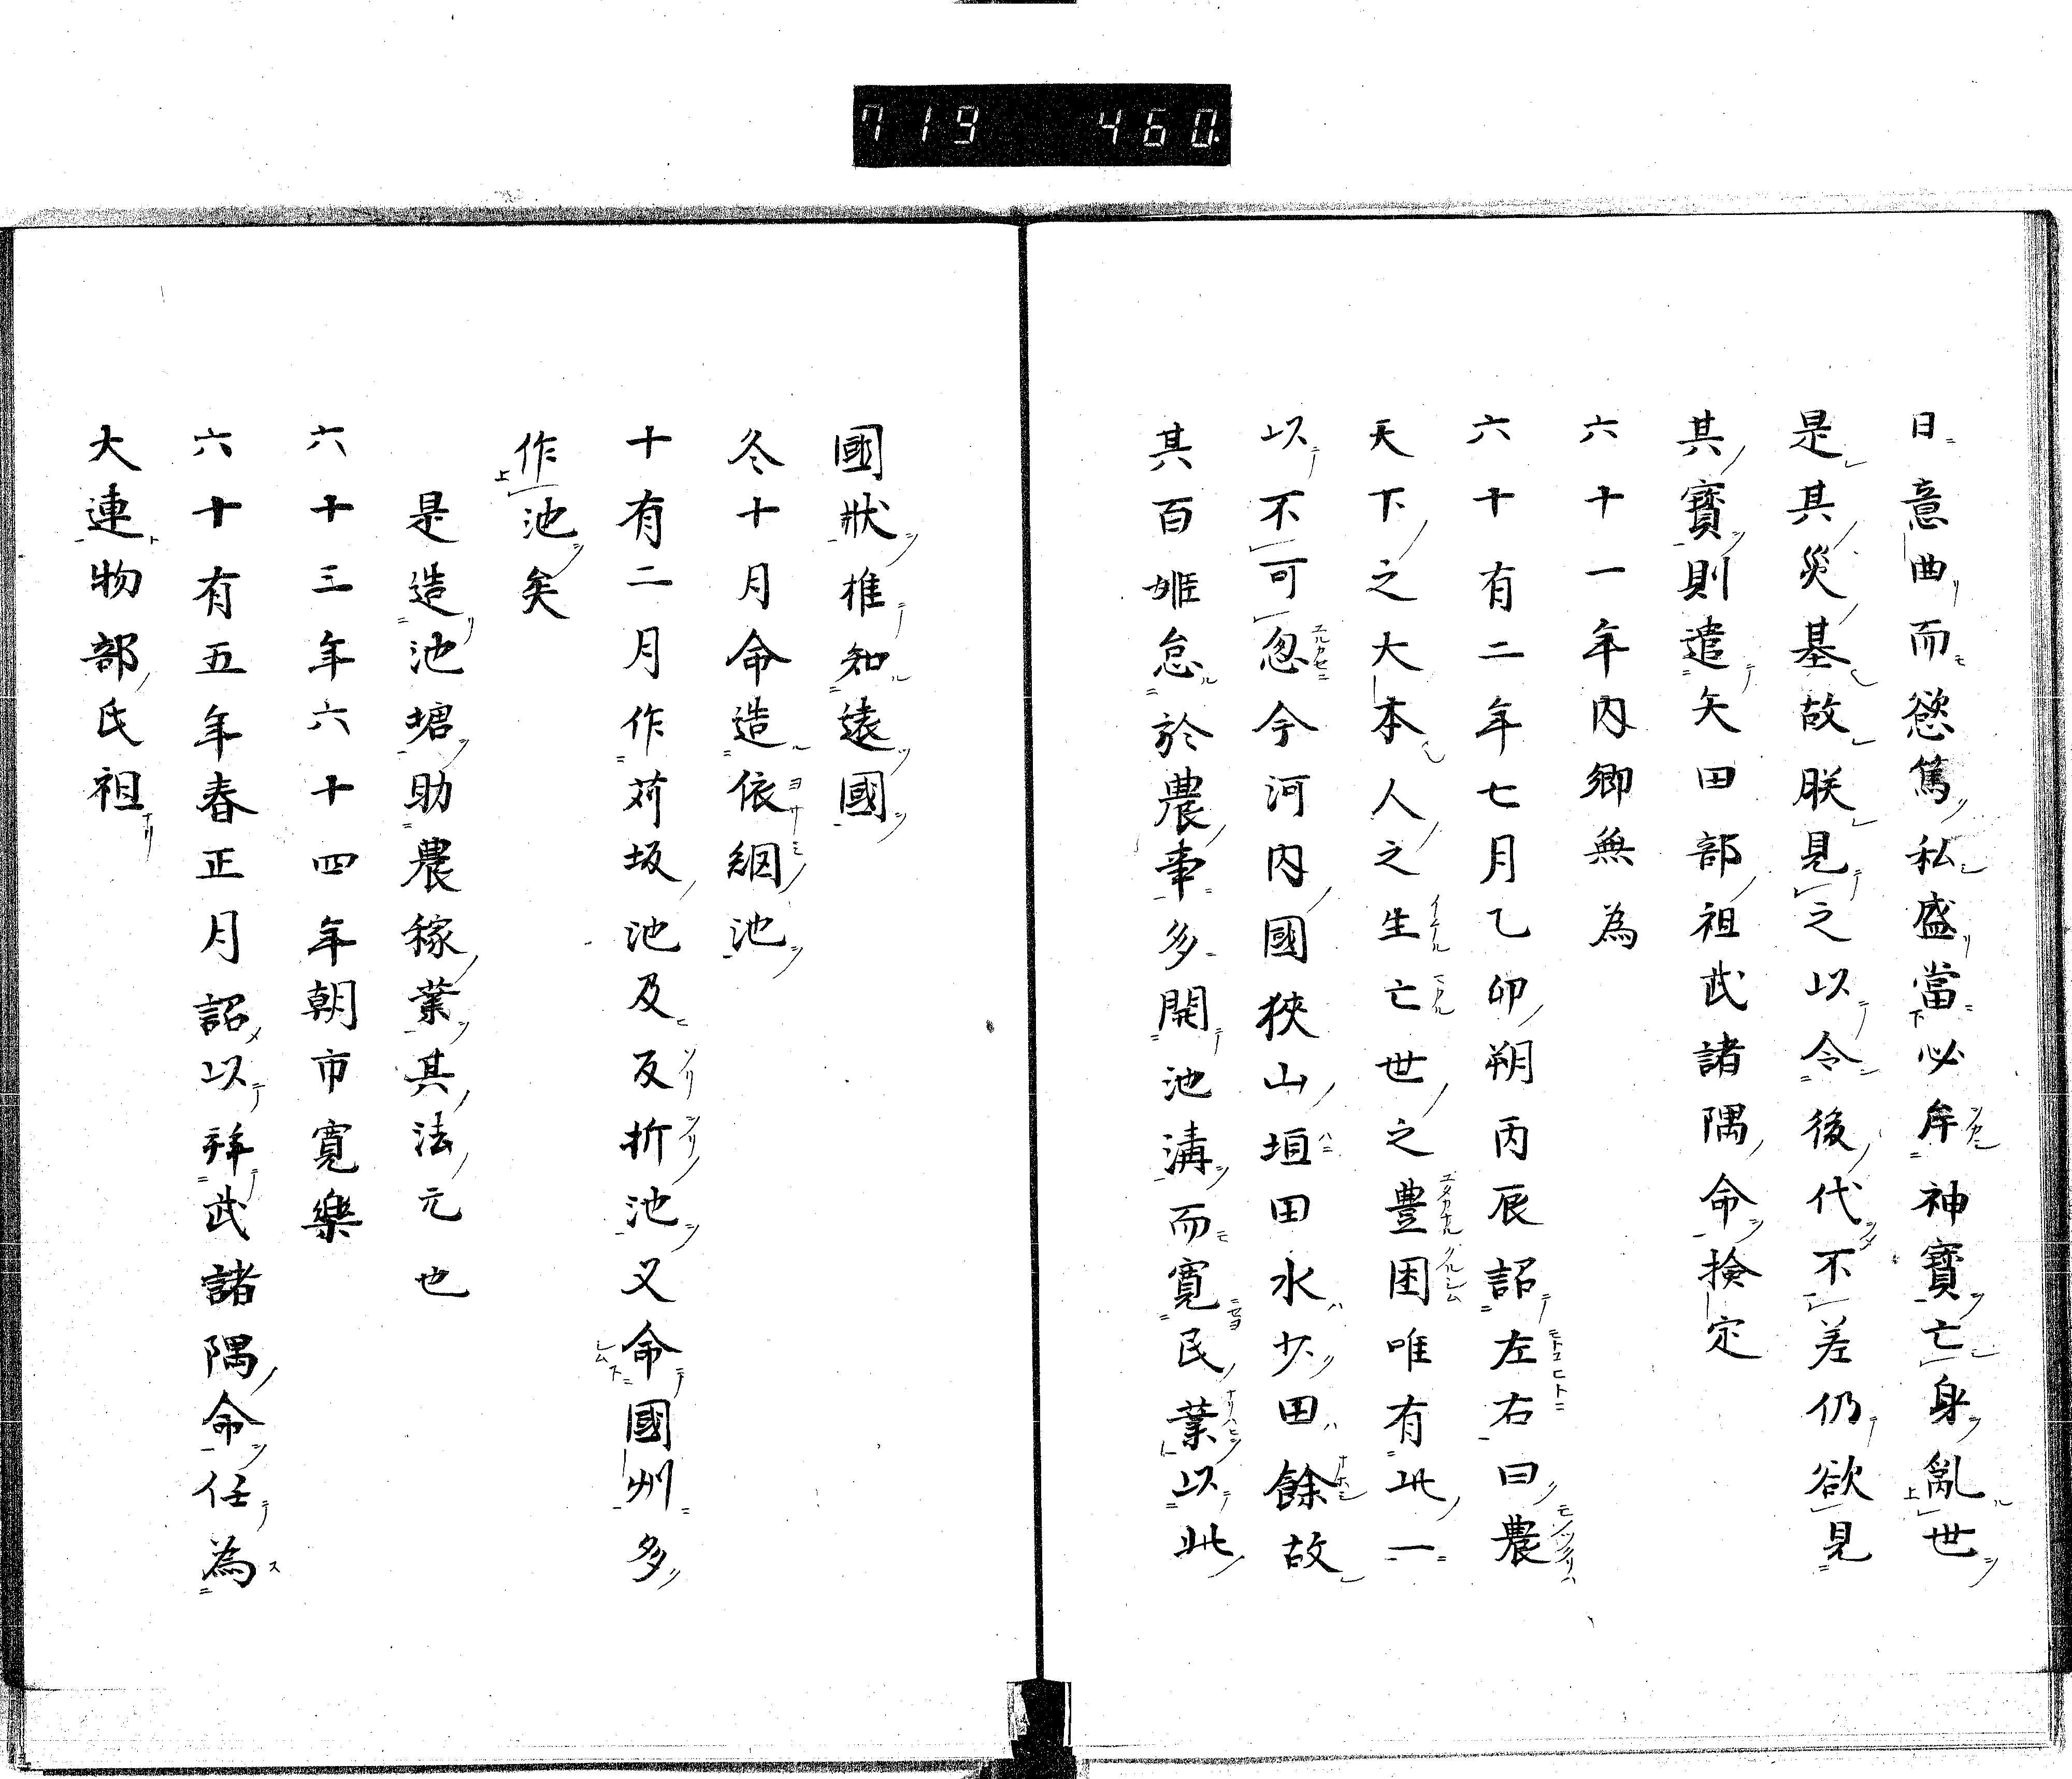 719 460
日意曲而慾篤私盛當必牟神寶亡身亂世
是其災基故朕見之以令後代不差仍欲見
其寶則遣矢田部祖武諸隅命検定
六十一年内卿無為
六十有二年七月乙卯朔丙辰詔左右曰農
天下之大本人之生亡世之豊困唯有此一
以不可忽今河内國狹山垣田水少田餘故
其百姫怠於農事多開池溝而寛民業以此
國狀推知遠國
冬十月命造依網池
十有二月作苅坂池及反折池又命國州多
作池矣
是造池塘助農稼業其法元也
六十三年六十四年朝市寛樂
六十有五年春正月詔以拜武諸隅命任為
大連物部氏祖